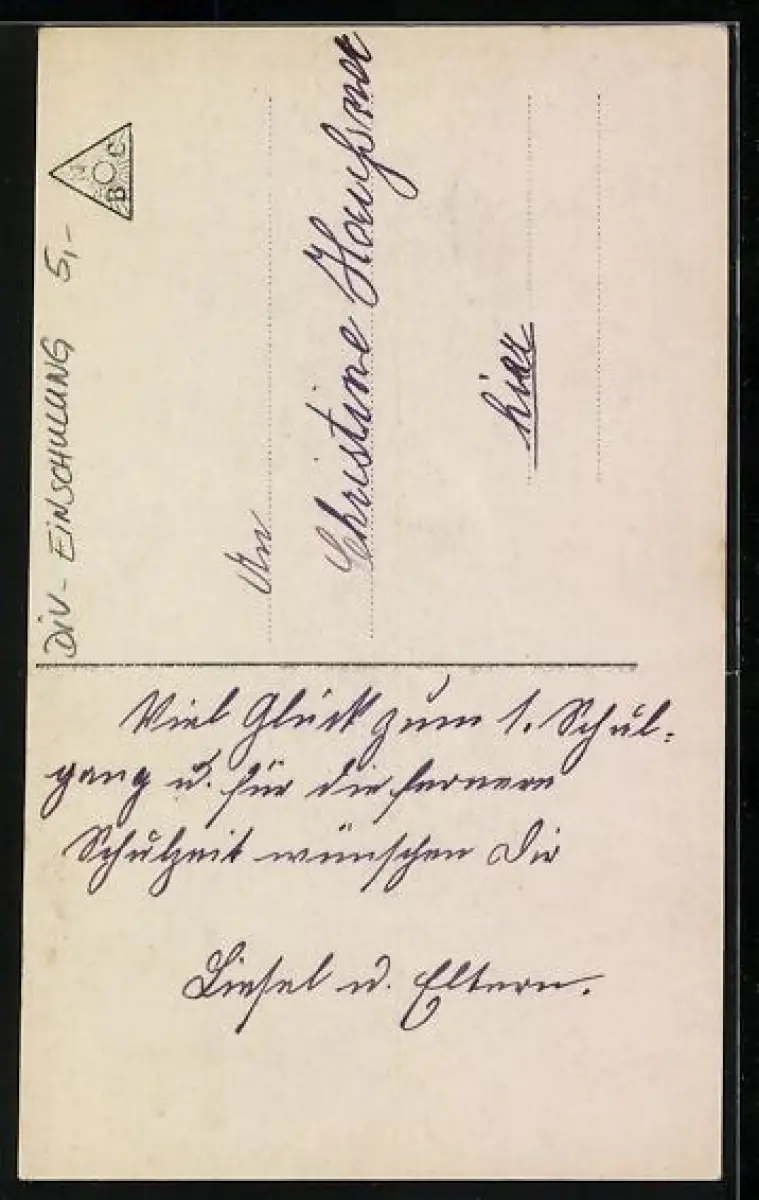 Viel Glück zum 1. Schul-
gang u. für die fernere
Schulzeit wünschen Dir
Liesel u. Eltern.
An
Christine
hier
DIV- EINSCHULUNG 5,-